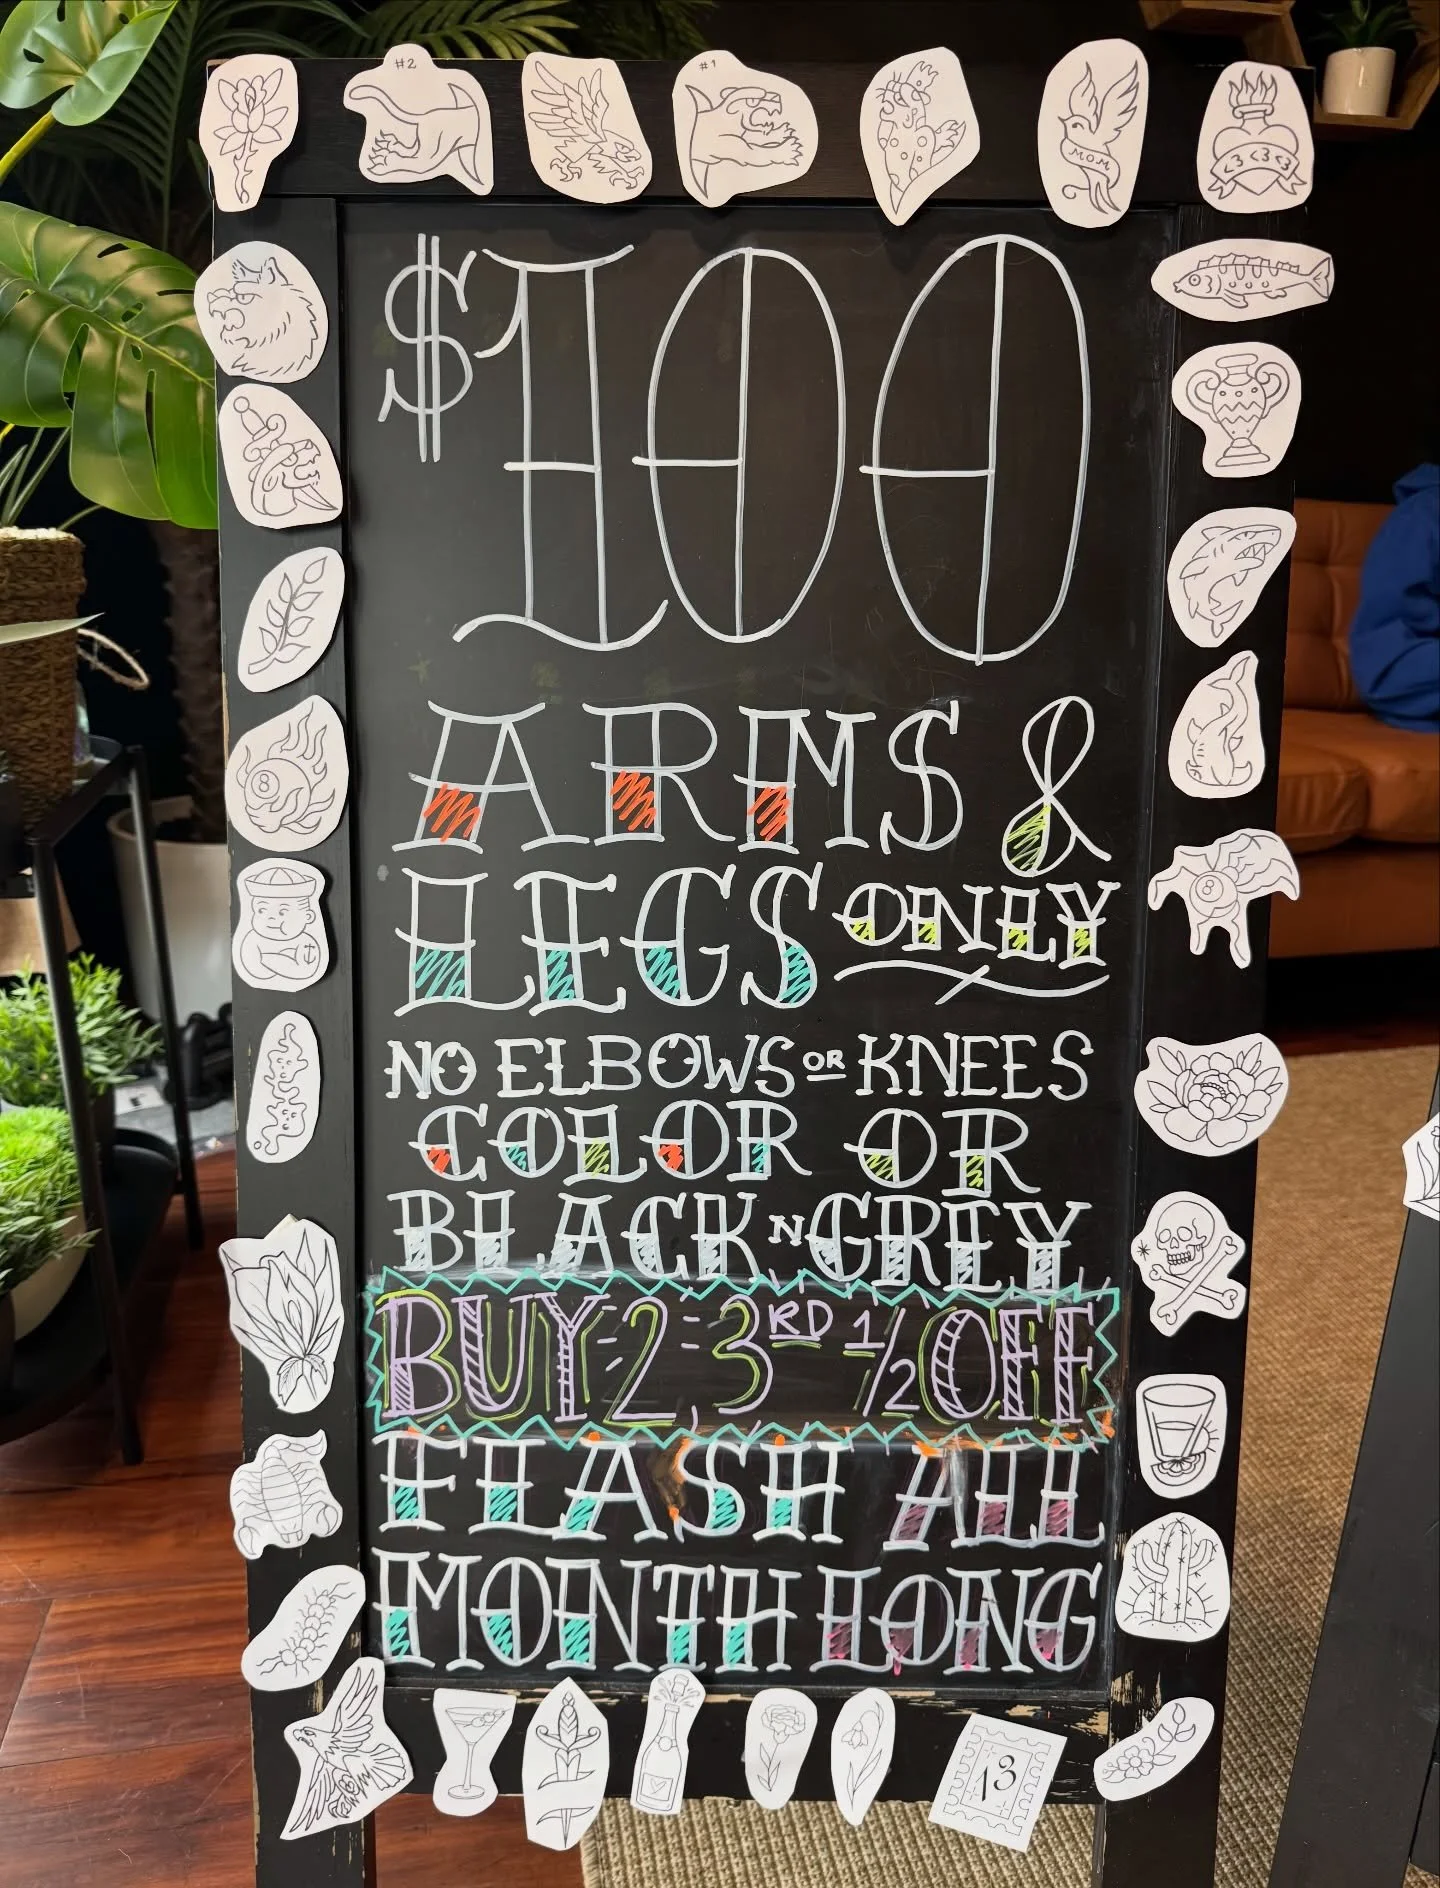 #2
#1
MOM
<3<3<3
$100
ARMS &
LEGS ONLY
NO ELBOWS OR KNEES
COLOR OR
BLACK N GREY
BUY 2, 3RD 1/2 OFF
FLASH ALL
MONTH LONG
8
8
13